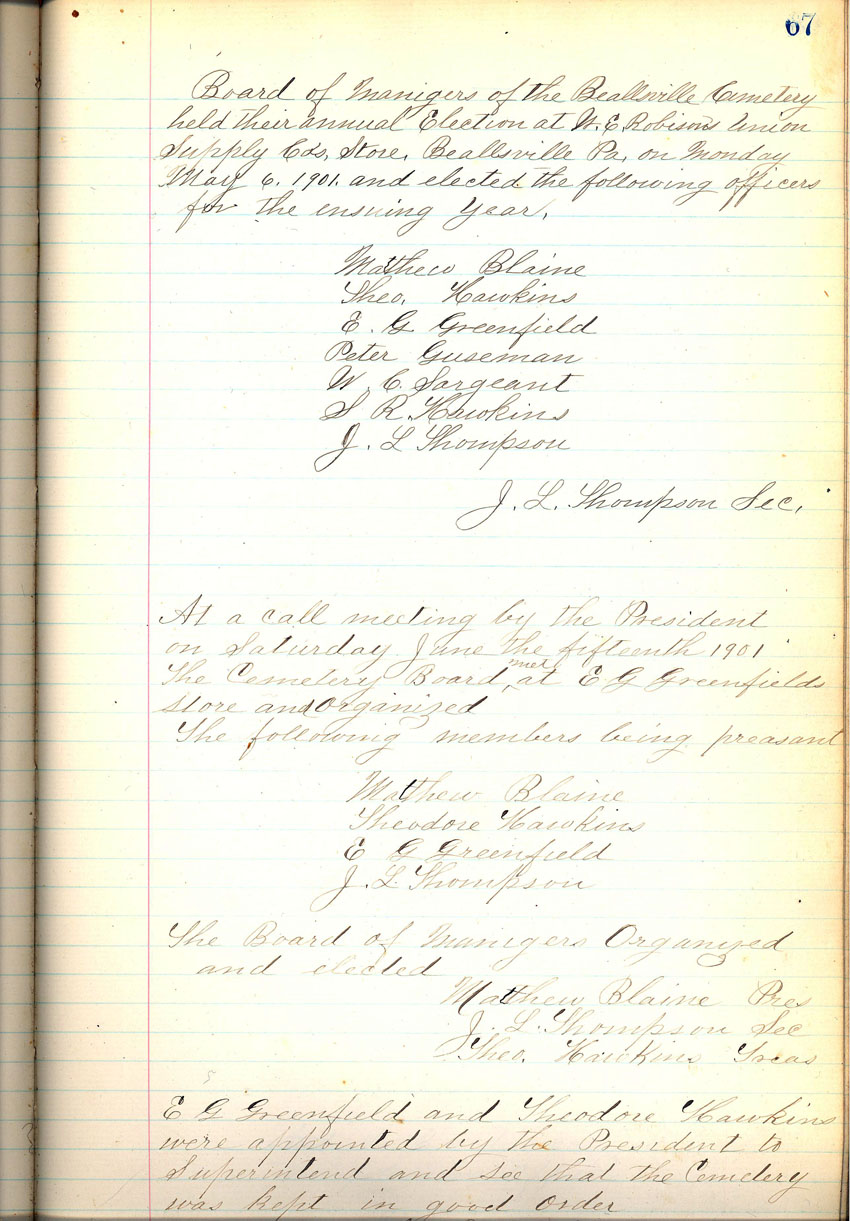 67
Board of Manigers of the Beallsville Cemetery
held their annual Election at W. E. Robisons Union
Supply Co's, Store, Beallsville Pa, on Monday
May 6. 1901. and elected the following officers
for the ensuing Year,
Mathew Blaine
Theo. Hawkins
E. G. Greenfield
Peter Guseman
W. C. Sargeant
S R. Hawkins
J. L Thompson
J. L. Thompson Sec.
At a call meeting by the President
on Saturday June the fifteenth 1901
The Cemetery Board met at E G Greenfields
store and organized
The following members being preasant
Matthew Blaine
Theodore Hawkins
E G Greenfield
J. L. Thompson
The Board of Manigers Organized
and elected
Matthew Blaine Pres
J. L. Thompson Sec
Theo. Hawkins Treas
E G Greenfield and Theodore Hawkins
were appointed by the President to
Superintend and see that the Cemetery
was kept in good order